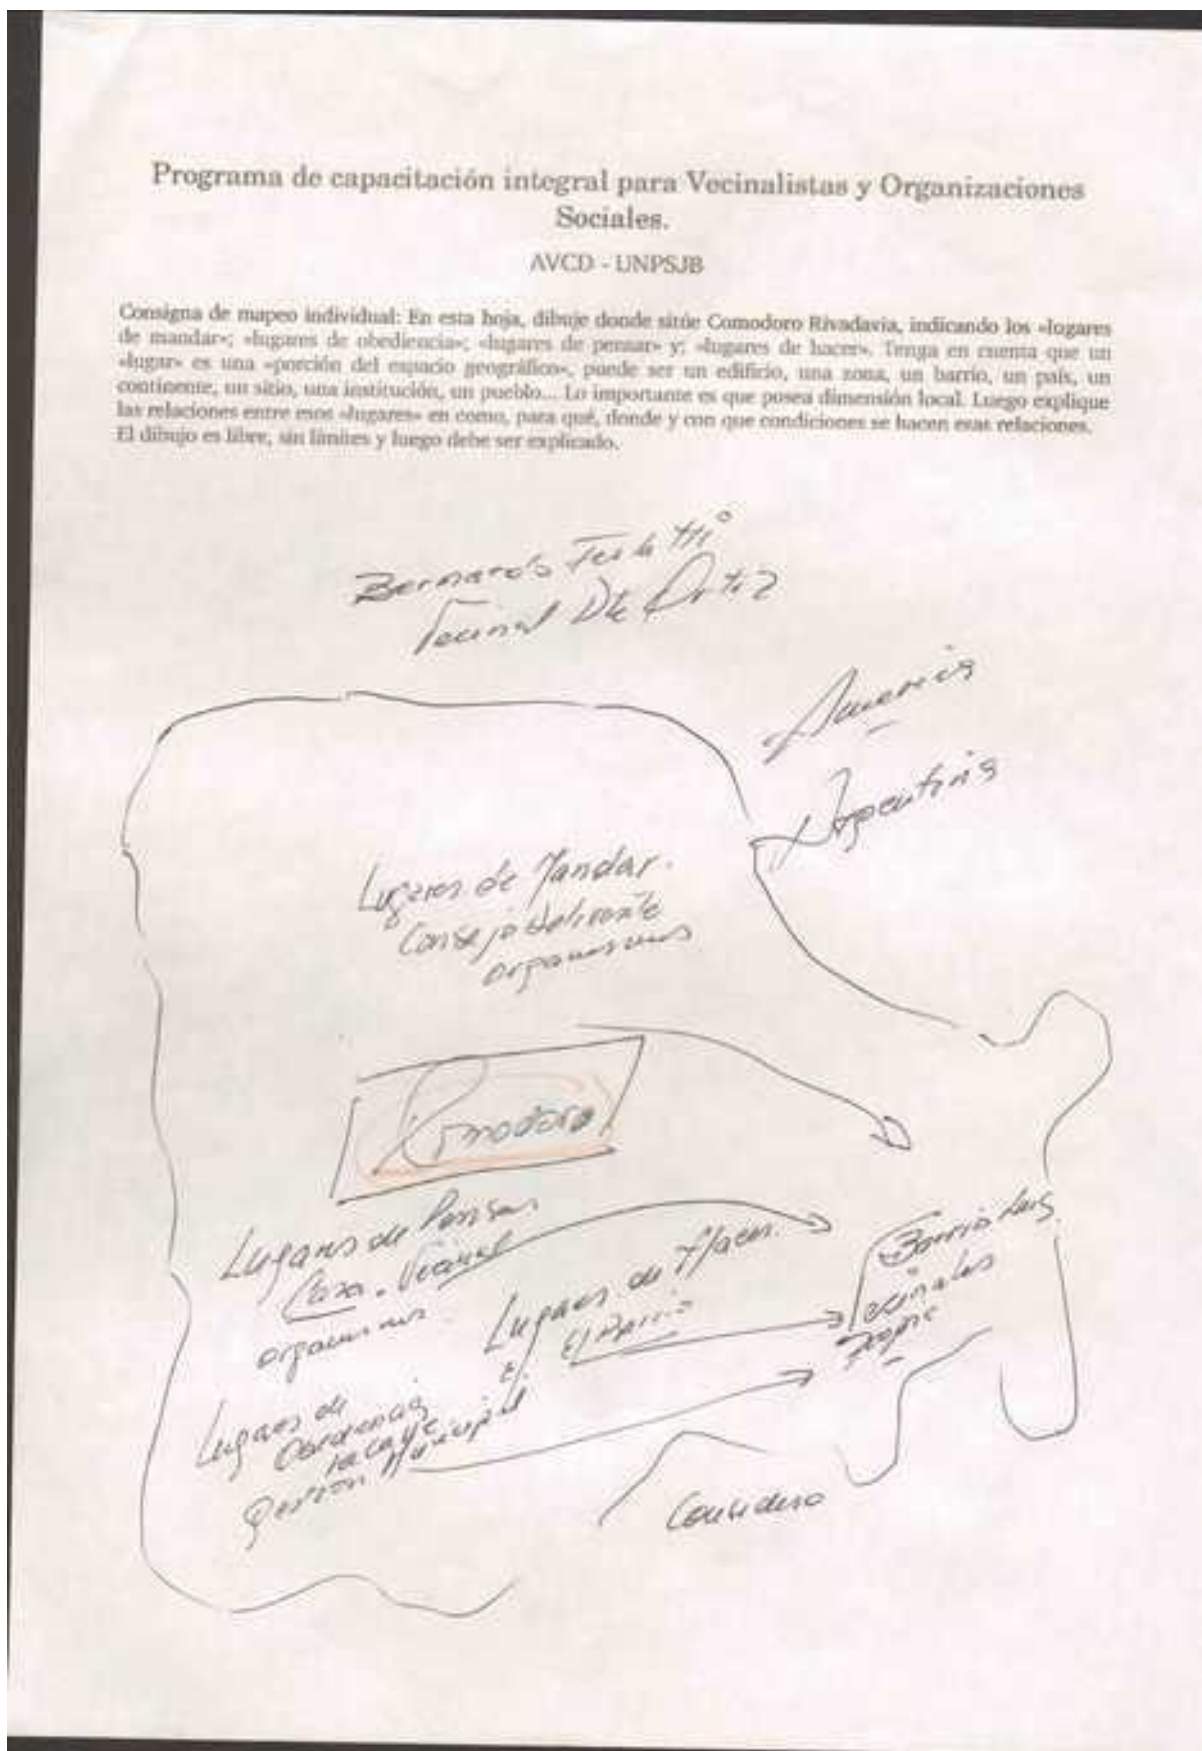 Programa de capacitación integral para Vecinalistas y Organizaciones
Sociales.
AVCD - UNPSJB
Consigna de mapeo individual: En esta hoja, dibuje donde sitúe Comodoro Rivadavia, indicando los «lugares
de mandar»; «lugares de obediencia»; «lugares de pensar» y; «lugares de hacer». Tenga en cuenta que un
«lugar» es una «porción del espacio geográfico», puede ser un edificio, una zona, un barrio, un país, un
continente, un sitio, una institución, un pueblo... Lo importante es que posea dimensión local. Luego explique
las relaciones entre esos «lugares» en como, para qué, donde y con que condiciones se hacen esas relaciones.
El dibujo es libre, sin límites y luego debe ser explicado.
Bernardo
Vecinal Dte Ortiz
America
Argentina
Lugares de Mandar.
Consejo deliverante
organismos
Comodoro
Lugares de Pensar
Casa. Vecinal
organismos
Lugares de Hacer.
El Barrio
Barrio
Lugares de
Obediencia
la calle
Gestion Municipal
Considero